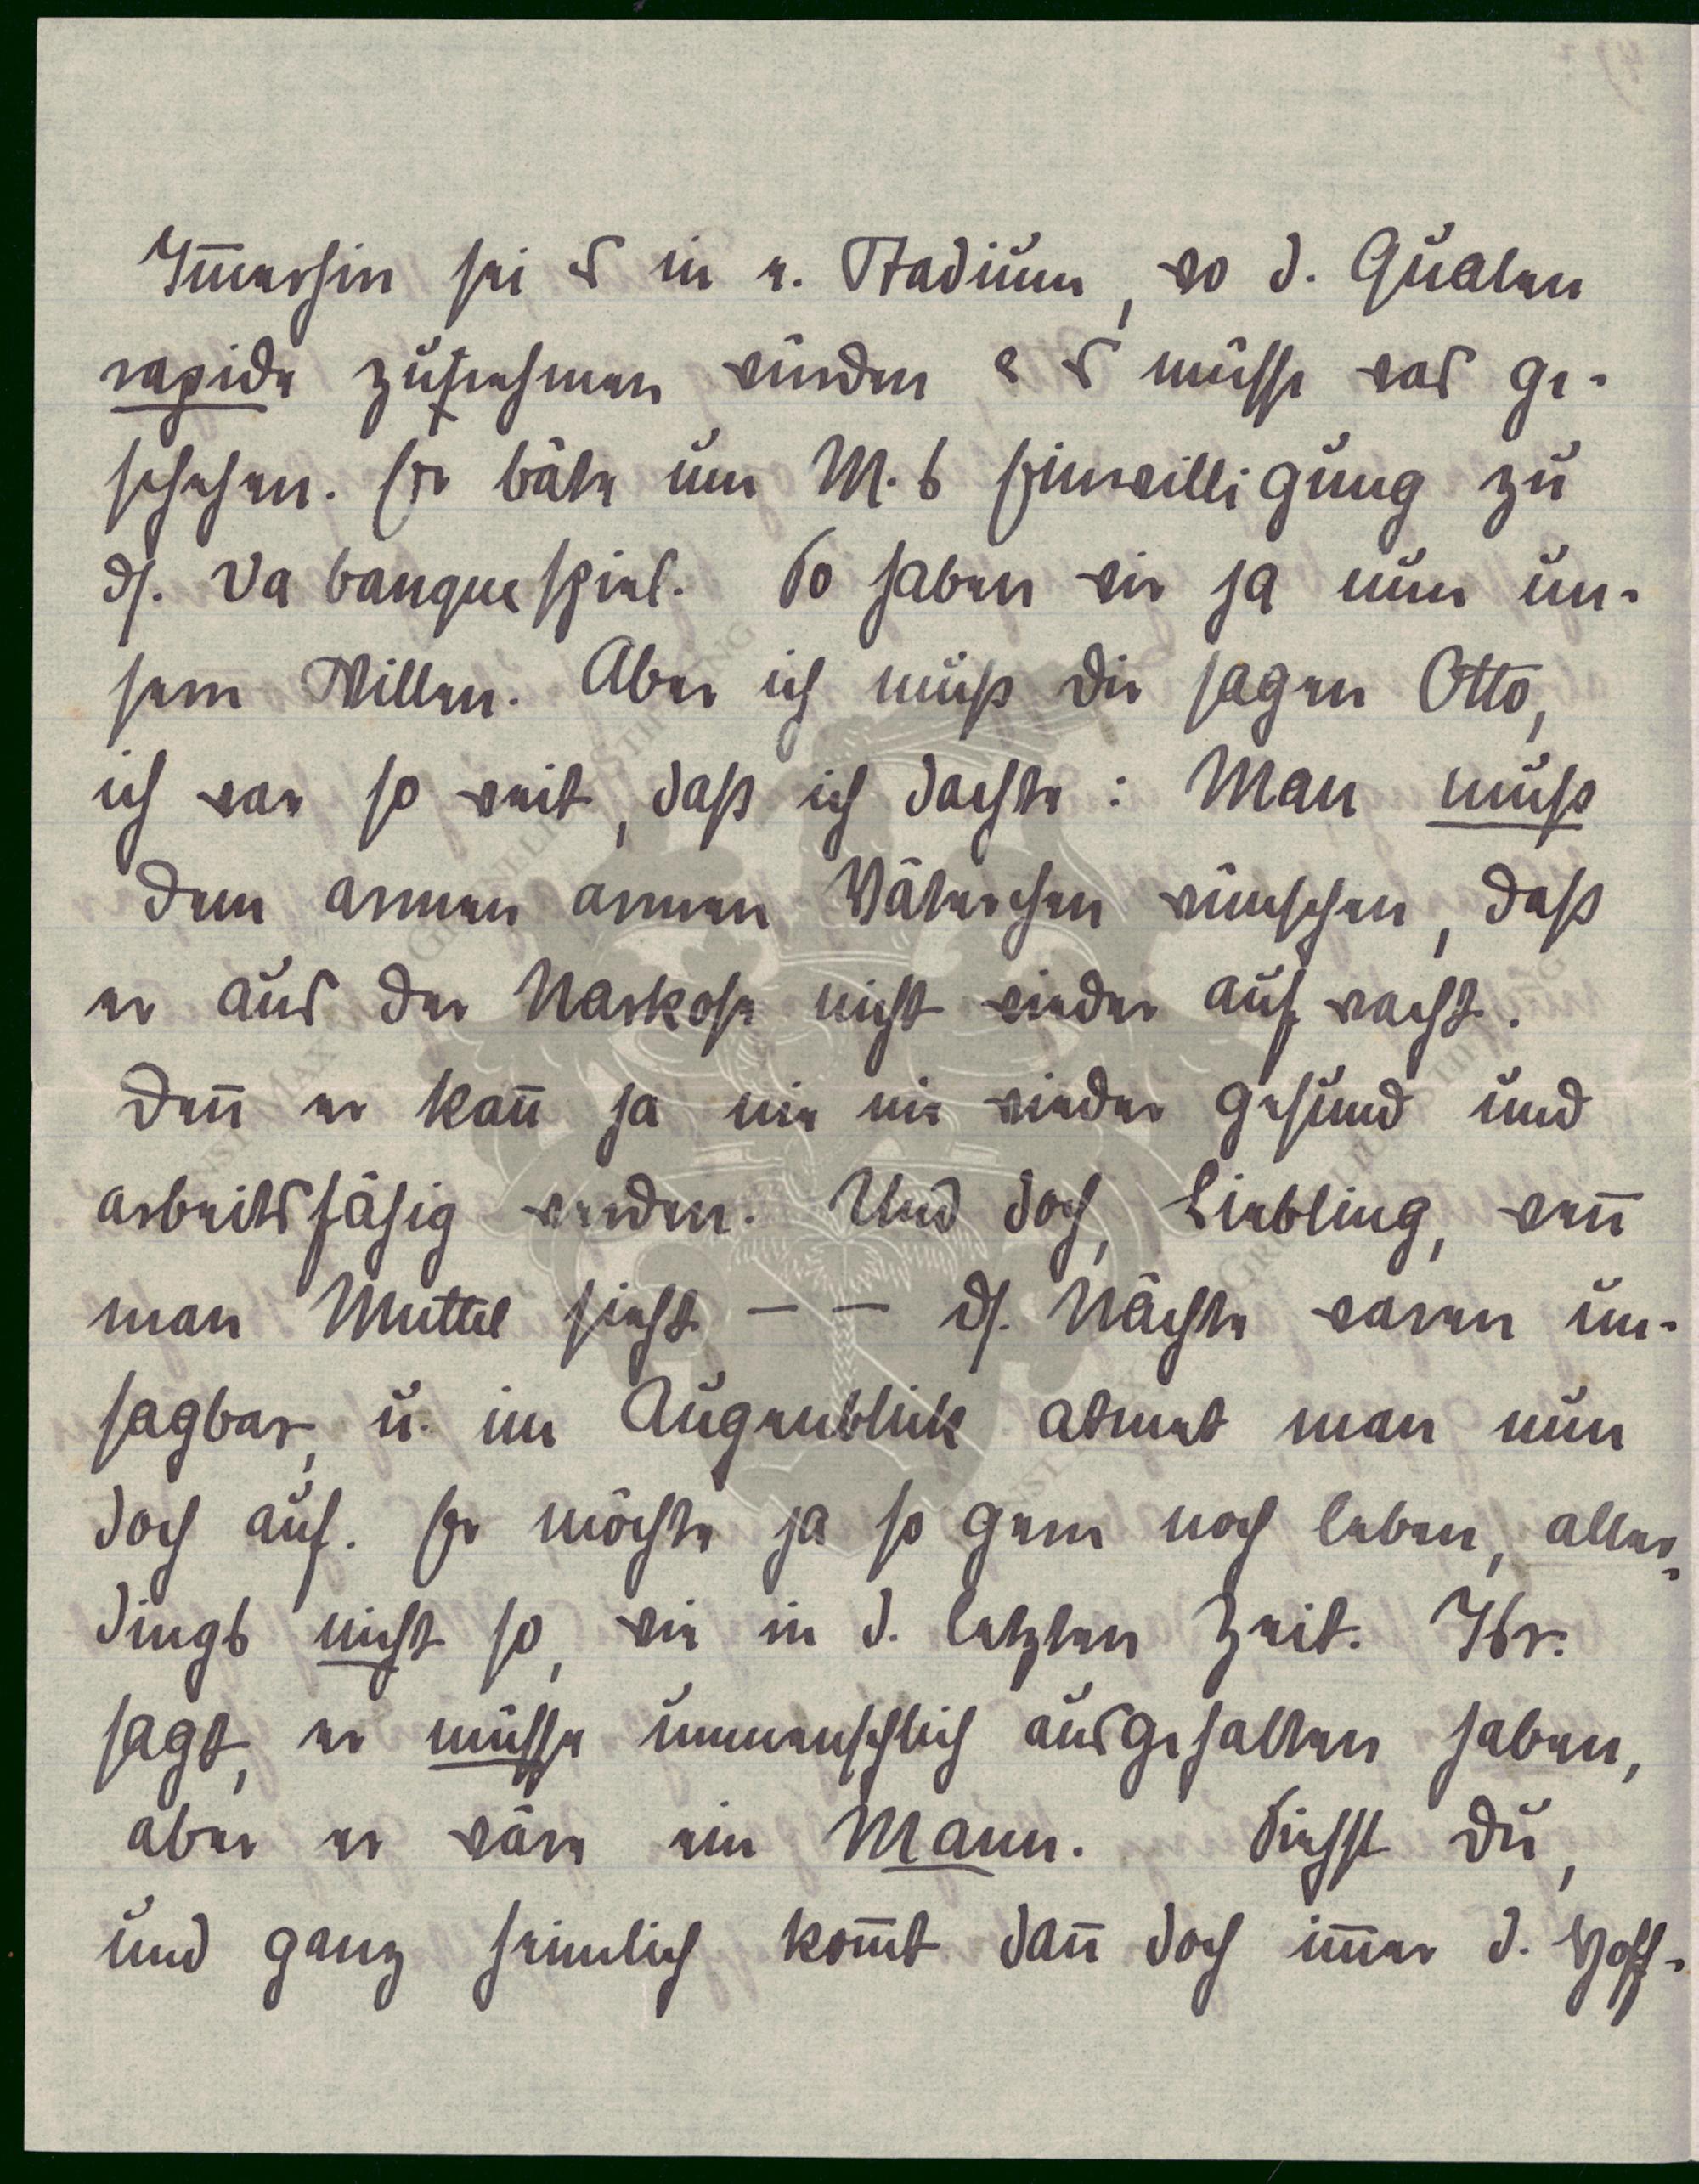 Im̅erhin sei es in e. Stadium, wo d. Qualen
rapide zunehmen würden & es müsse was ge-
schehen. Er bäte um M.s Einwilligung zu
ds. Va banquespiel. So haben wir ja nun un-
sern Willen. Aber ich muß Dir sagen Otto,
ich war so weit, daß ich dachte: Man muß
dem armen armen Väterchen wünschen, daß
er aus der Narkose nicht wieder aufwacht.
Den̅ er kan̅ ja nie nie wieder gesund und
arbeitsfähig werden. Und doch, Liebling, wen̅
man Muttel sieht – – ds. Nächte waren un-
sagbar, u. im Augenblick atmet man nun
doch auf. Er möchte ja so gern noch leben, aller-
dings nicht so, wie in d. letzten Zeit. Isr.
sagt, er müsse unmenschlich ausgehalten haben,
aber er wäre ein Mann. Siehst Du,
und ganz heimlich kom̅t dan̅ doch im̅er d. Hoff-
GRÜNSTIFTUNG